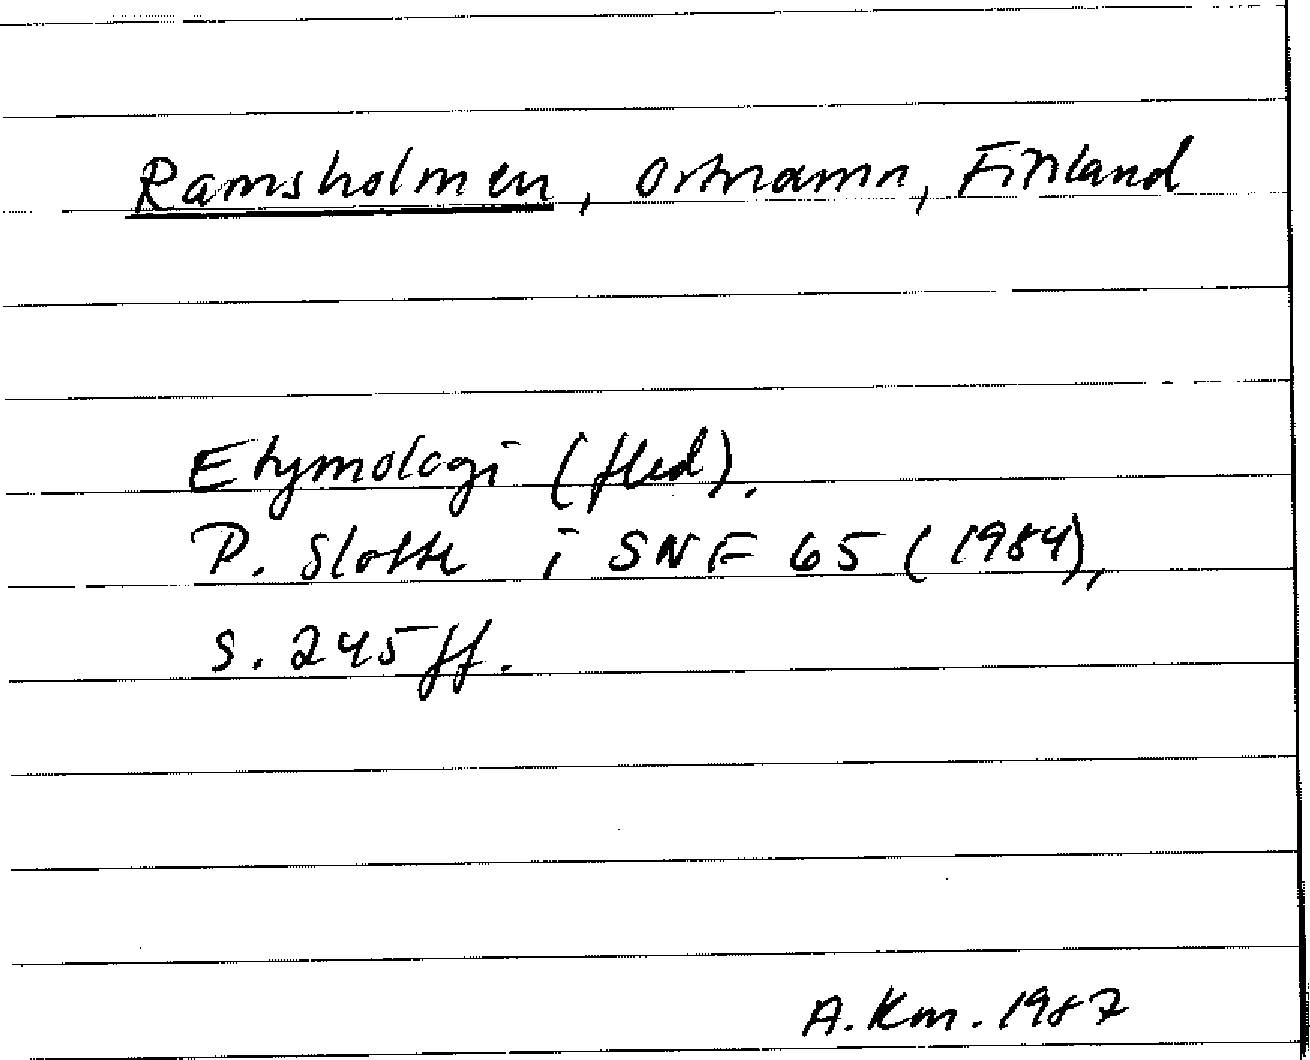 Ramsholmen, Ortnamn, Finland
Etymologi (fled).
P. Slotte i SNF 65 (1984),
s. 245 ff.
A. Km. 1987